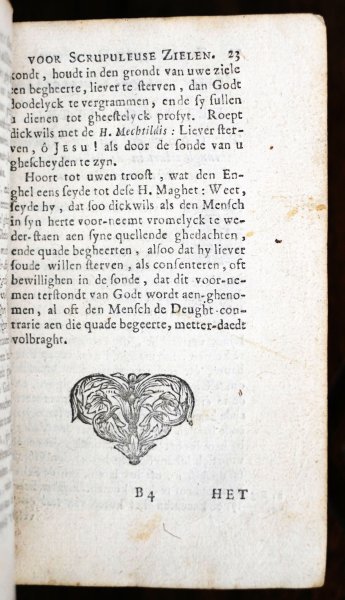 VOOR SCRUPULEUSE ZIELEN. 23
condt, houdt in den grondt van uwe ziele
een begheerte, liever te sterven, dan Godt
doodelyck te vergrammen, ende sy sullen
u dienen tot gheestelyck profyt. Roept
dickwils met de H. Mechtildis: Liever ster-
ven, ô JESU! als door de sonde van u
ghescheyden te zyn.
Hoort tot uwen troost, wat den En-
ghel eens seyde tot dese H. Maghet: Weet,
seyde hy, dat soo dickwils als den Mensch
in syn herte voor-neemt vromelyck te we-
der-staen aen syne quellende ghedachten,
ende quade begheerten, alsoo dat hy liever
soude willen sterven, als consenteren, oft
bewillighen in de sonde, dat dit voor-ne-
men terstondt van Godt wordt aen-gheno-
men, al oft den Mensch de Deught con-
trarie aen die quade begeerte, metter-daedt
volbraght.
B4 HET